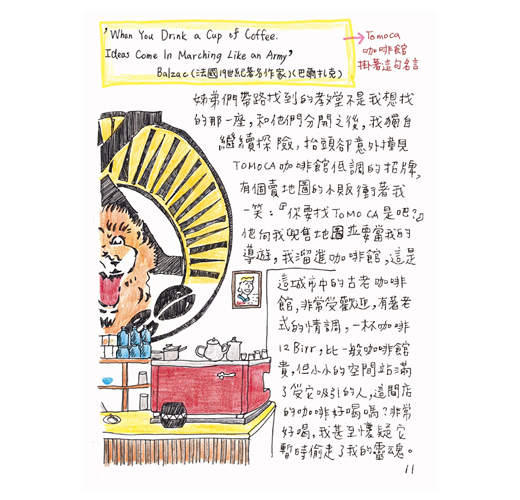 'When You Drink a Cup of Coffee.
Ideas Come In Marching Like an Army'
Balzac (法國19世紀著名作家)(巴爾扎克)
Tomoca
咖啡館
掛著這句名言
姊弟們帶路找到的教堂不是我想找
的那一座,和他們分開之後,我獨自
繼續探險,抬頭卻意外撞見
TOMOCA咖啡館低調的招牌,
有個賣地圖的小販衝著我
一笑:『你要找TOMOCA是吧?』
他向我兜售地圖並要當我的
導遊,我溜進咖啡館,這是
這城市中的古老咖啡
館,非常受歡迎,有著老
式的情調,一杯咖啡
12 Birr,比一般咖啡館
貴,但小小的空間站滿
了受它吸引的人,這間店
的咖啡好喝嗎?非常
好喝,我甚至懷疑它
暫時偷走了我的靈魂。
11